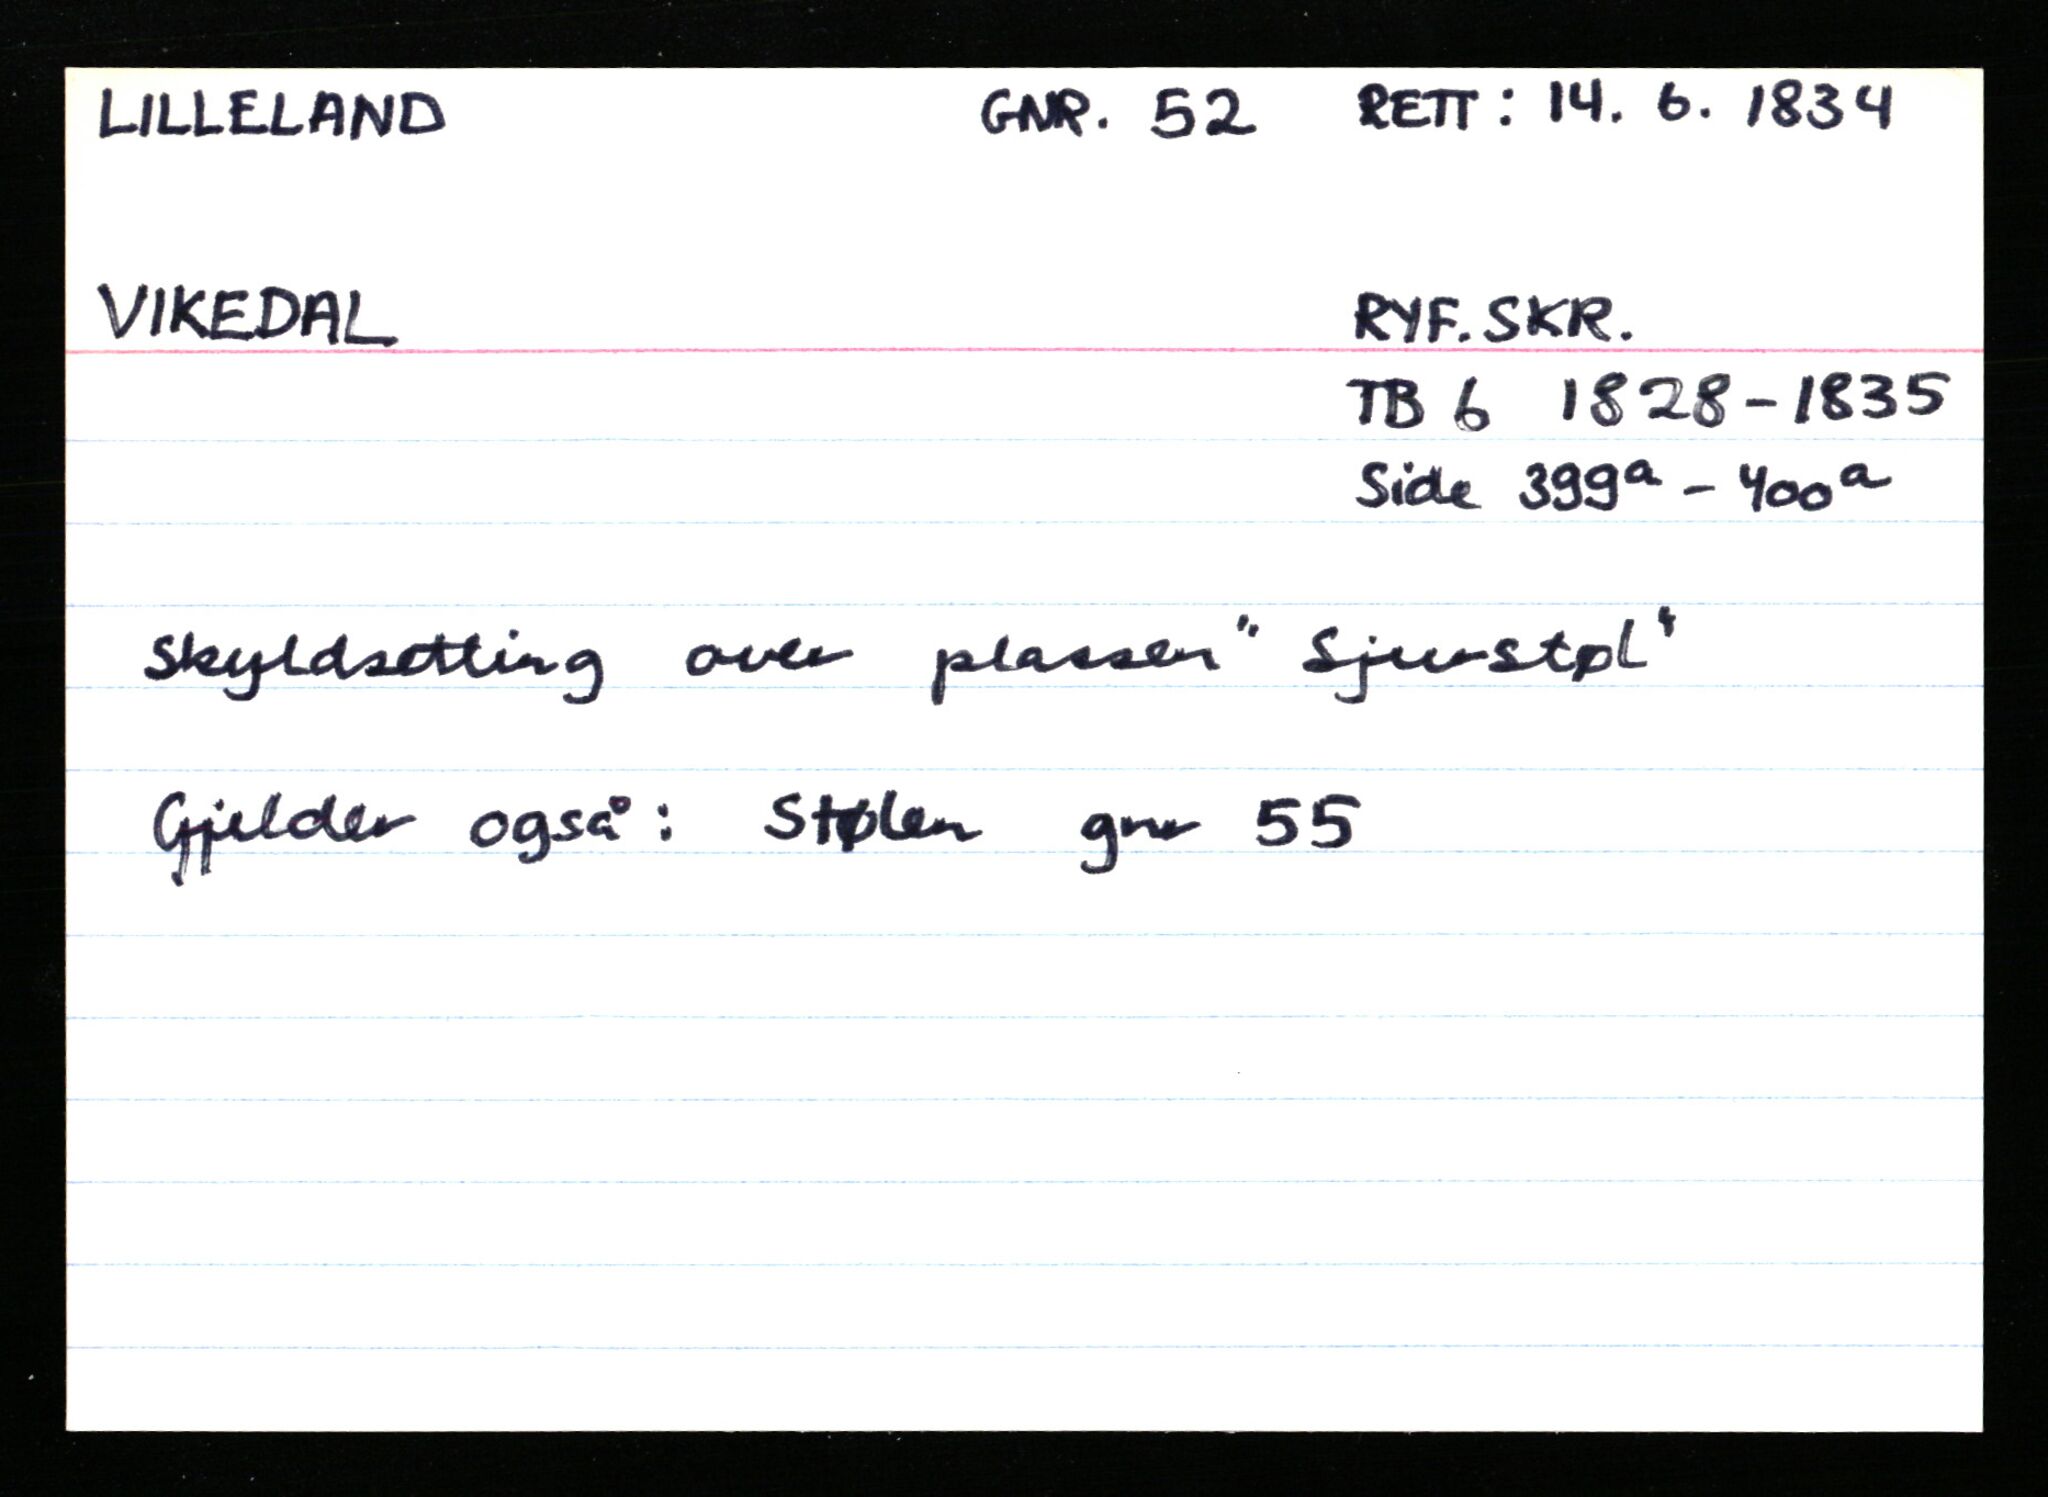 LILLELAND GNR. 52 RETT: 14. 6. 1834
VIKEDAL RYF. SKR.
TB 6 1828-1835
Side 399a - 400a
Skyldsetting over plassen "Sjurstøl"
Gjelder også: Stølen gnr 55